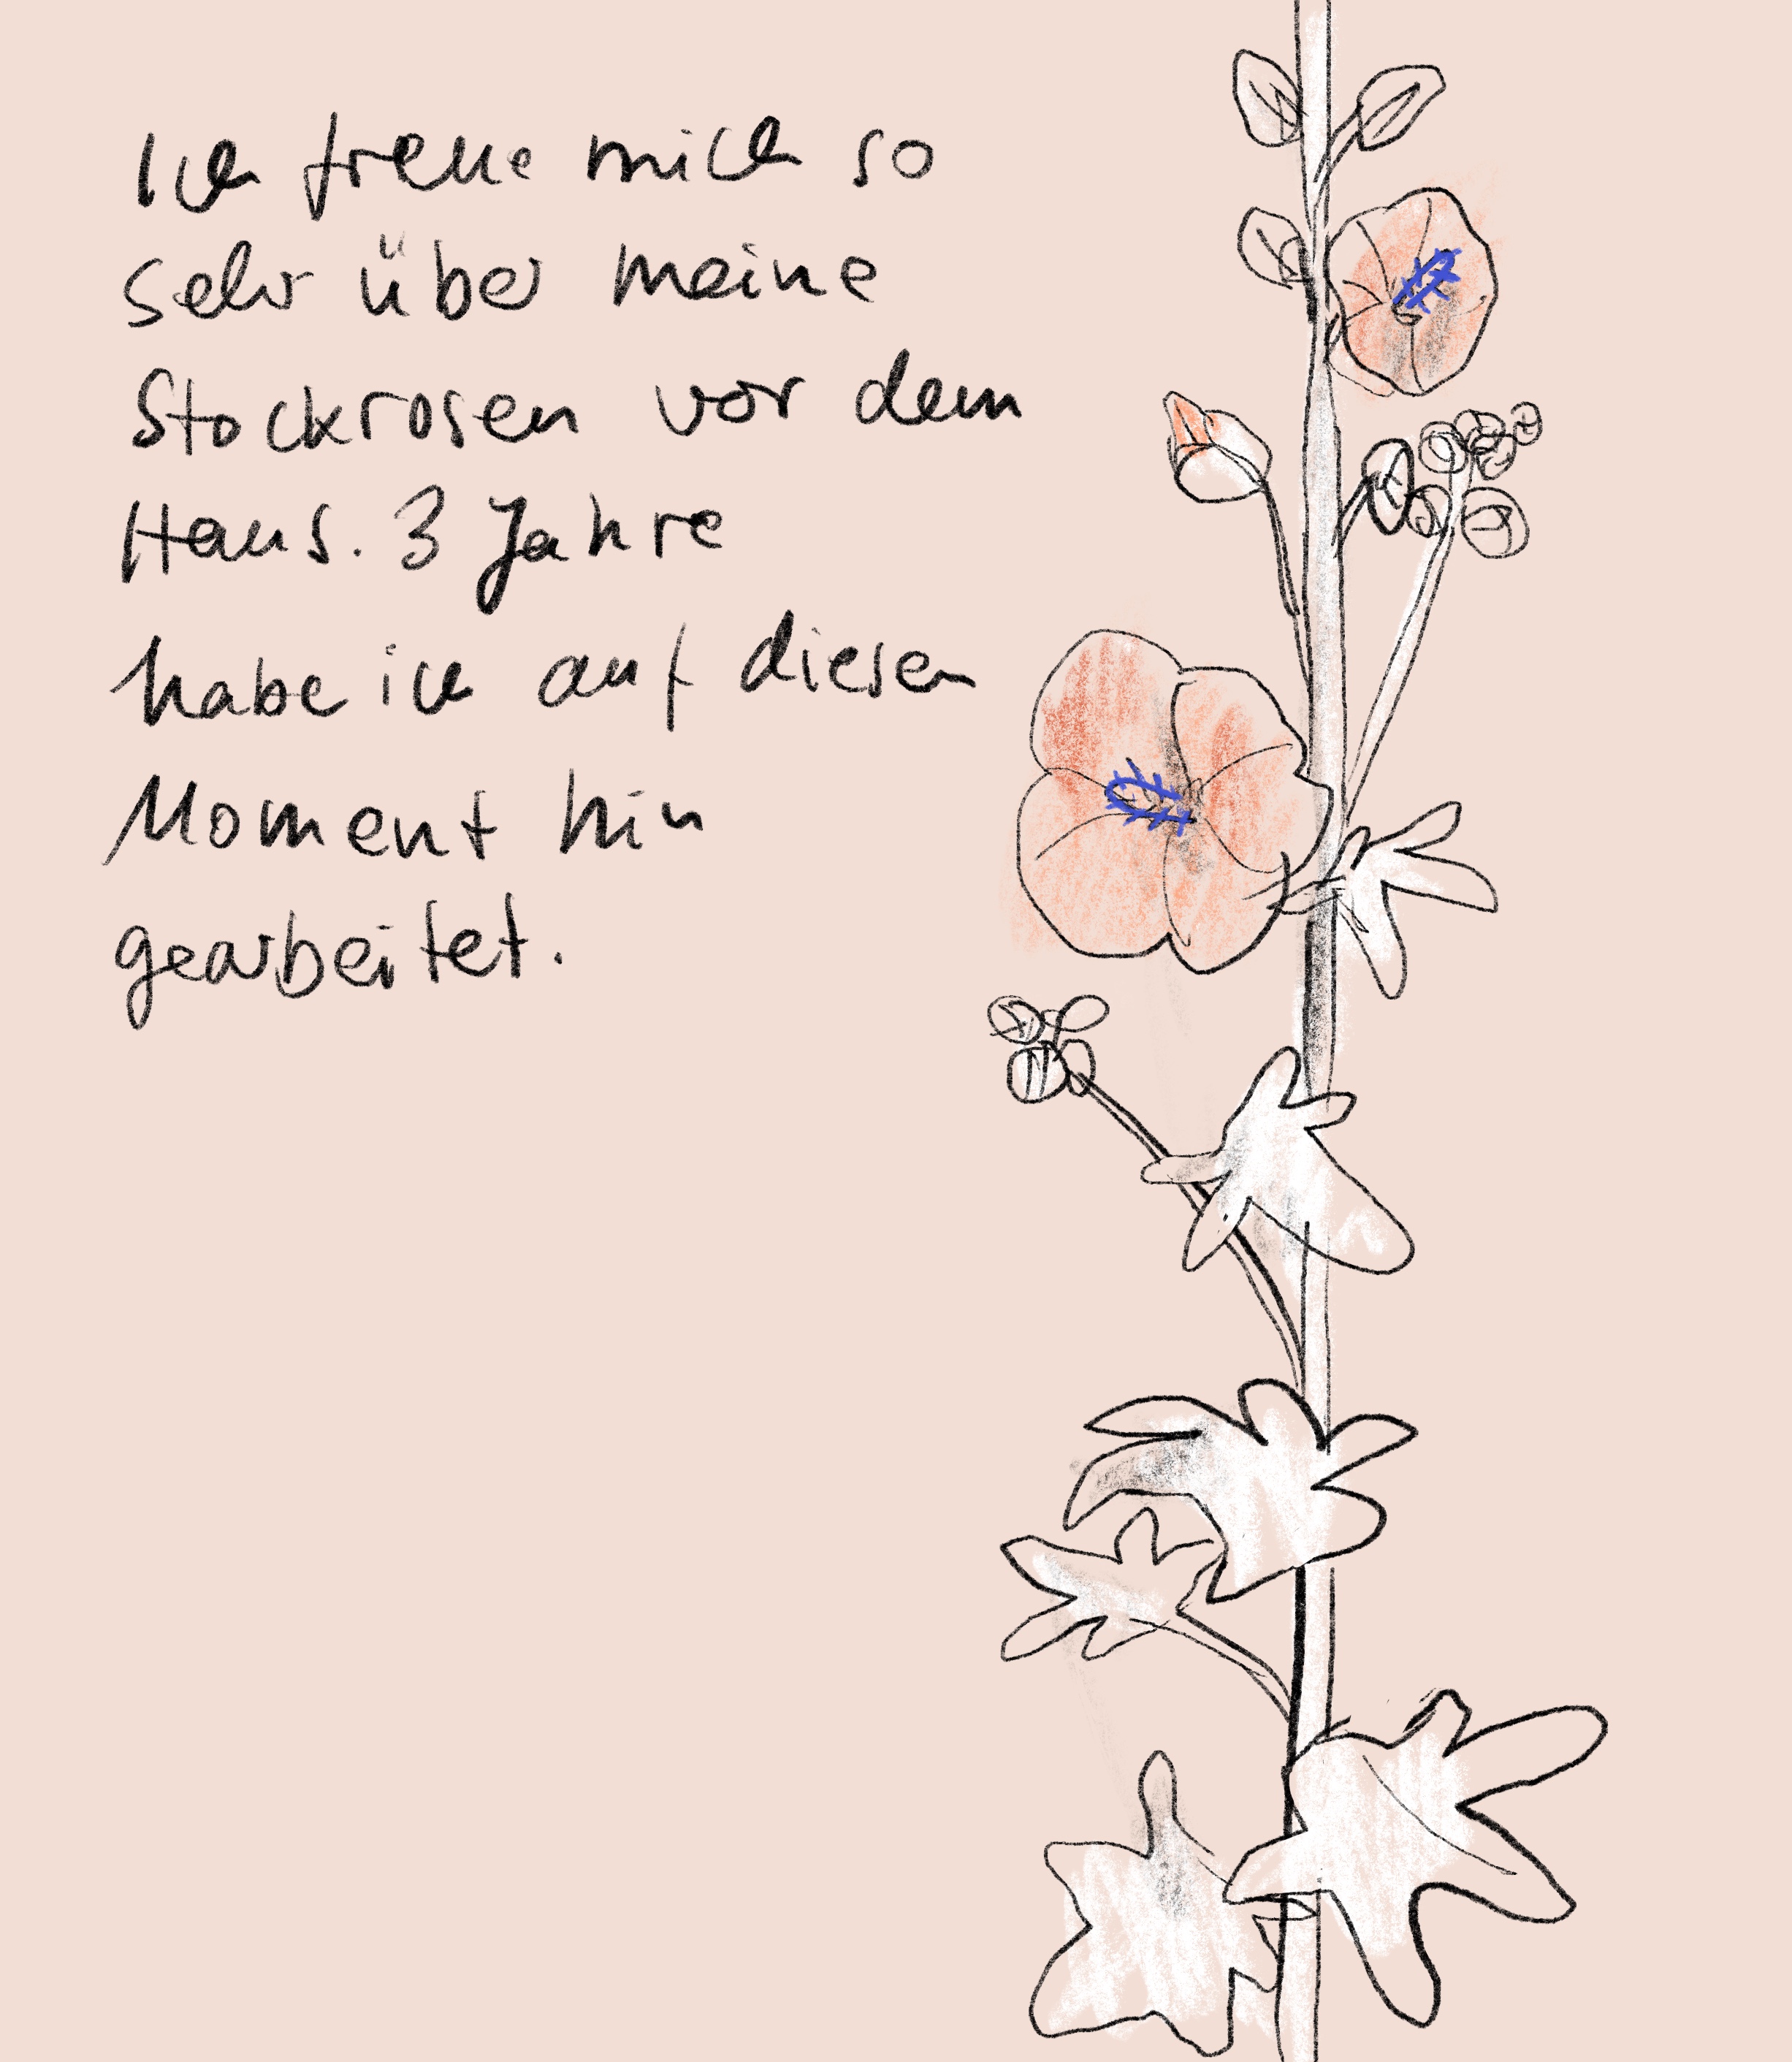 Ich freue mich so
sehr über meine
Stockrosen vor dem
Haus. 3 Jahre
habe ich auf diesen
Moment hin
gearbeitet.